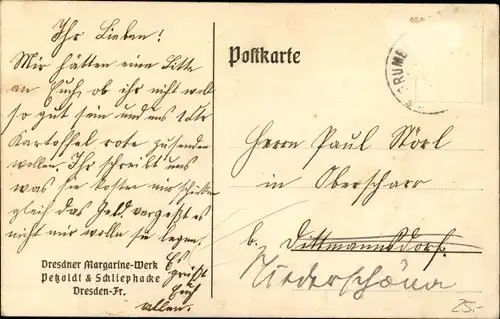 Ihr Lieben!
Mir hätten eine Bitte
an Euch, ob ihr nicht wollt
so gut sein und uns 1 Ctr
Kartoffel rote zusenden
wollen. Ihr schreibt uns
was sie kosten wir schicken
gleich das Geld. vergeßt es
nicht wir wolle sie legen.
Es
grüßt
Euch
allen.
Dresdner Margarine-Werk
Petzoldt & Schliephacke
Dresden-Fr.
Postkarte
GRUMB
Herrn Paul Störl
in Oberschaar
b. Dittmannsdorf.
Niederschöna
25.-